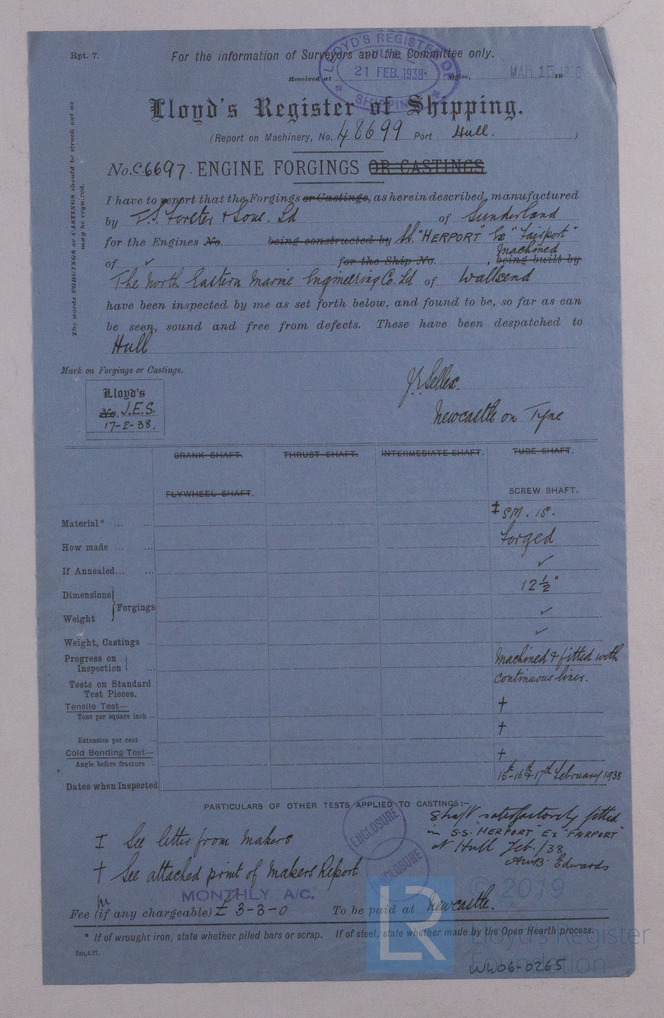 Rpt. 7.
For the information of Surveyors and the Committee only.
LLOYD'S REGISTER OF SHIPPING
21 FEB. 1938
Received at
MAR 15 19
Lloyd's Register of Shipping.
(Report on Machinery, No. 48699 Port Hull.)
No. C6697. ENGINE FORGINGS OR CASTINGS.
I have to report that the Forgings or Castings, as herein described, manufactured
by T.S. Forster & Sons. Ld of Sunderland
for the Engines No. being constructed by SS. "HERPORT" Ex "Fairport"
machined
of ✓ for the Ship No. , being built by
The North Eastern Marine Engineering Co. Ld of Wallsend
have been inspected by me as set forth below, and found to be, so far as can
be seen, sound and free from defects. These have been despatched to
Hull
The words FORGINGS or CASTINGS should be struck out as
may be required.
Mark on Forgings or Castings.
Lloyd's
No. J.E.S.
17-2-38.
Newcastle on Tyne
CRANK SHAFT. THRUST SHAFT. INTERMEDIATE SHAFT. TUBE SHAFT.
FLYWHEEL SHAFT. SCREW SHAFT.
Material* ... ... ‡ SM. IS.
How made ... ... Forged
If Annealed... ... ✓
Dimensions } Forgings 12 ½"
Weight ✓
Weight, Castings ... ✓
Progress on Inspection } Machined & fitted with
continuous liner.
Tests on Standard
Test Pieces.
Tensile Test—
Tons per square inch †
Extension per cent †
Cold Bending Test—
Angle before fracture †
Dates when Inspected 15th-16th & 17th February 1938
PARTICULARS OF OTHER TESTS APPLIED TO CASTINGS:—
Shaft satisfactorily fitted
in S.S. "HERPORT" Ex "FAIRPORT"
at Hull Feb. /38.
Edwards
ENCLOSURE
ENCLOSURE
‡ See letter from makers
† See attached print of Makers Report
MONTHLY A/C.
Fee (if any chargeable) £ 3-3-0 To be paid at Newcastle.
* If of wrought iron, state whether piled bars or scrap. If of steel, state whether made by the Open Hearth process.
LR
© 2019
Lloyd's Register
Foundation
WW06-0265